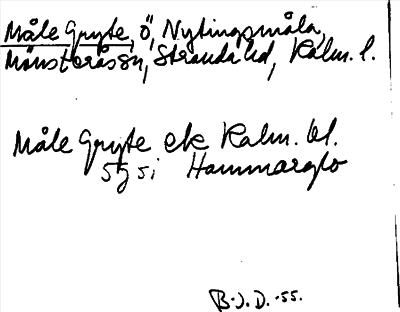 Måle Gryte, ö, Nytingsmåla,
Mönsterås sn, Stranda hd, Kalm. l.
Måle Gryte ek Kalm. bl.
5g si Hammarglo
B.J.D. -55.